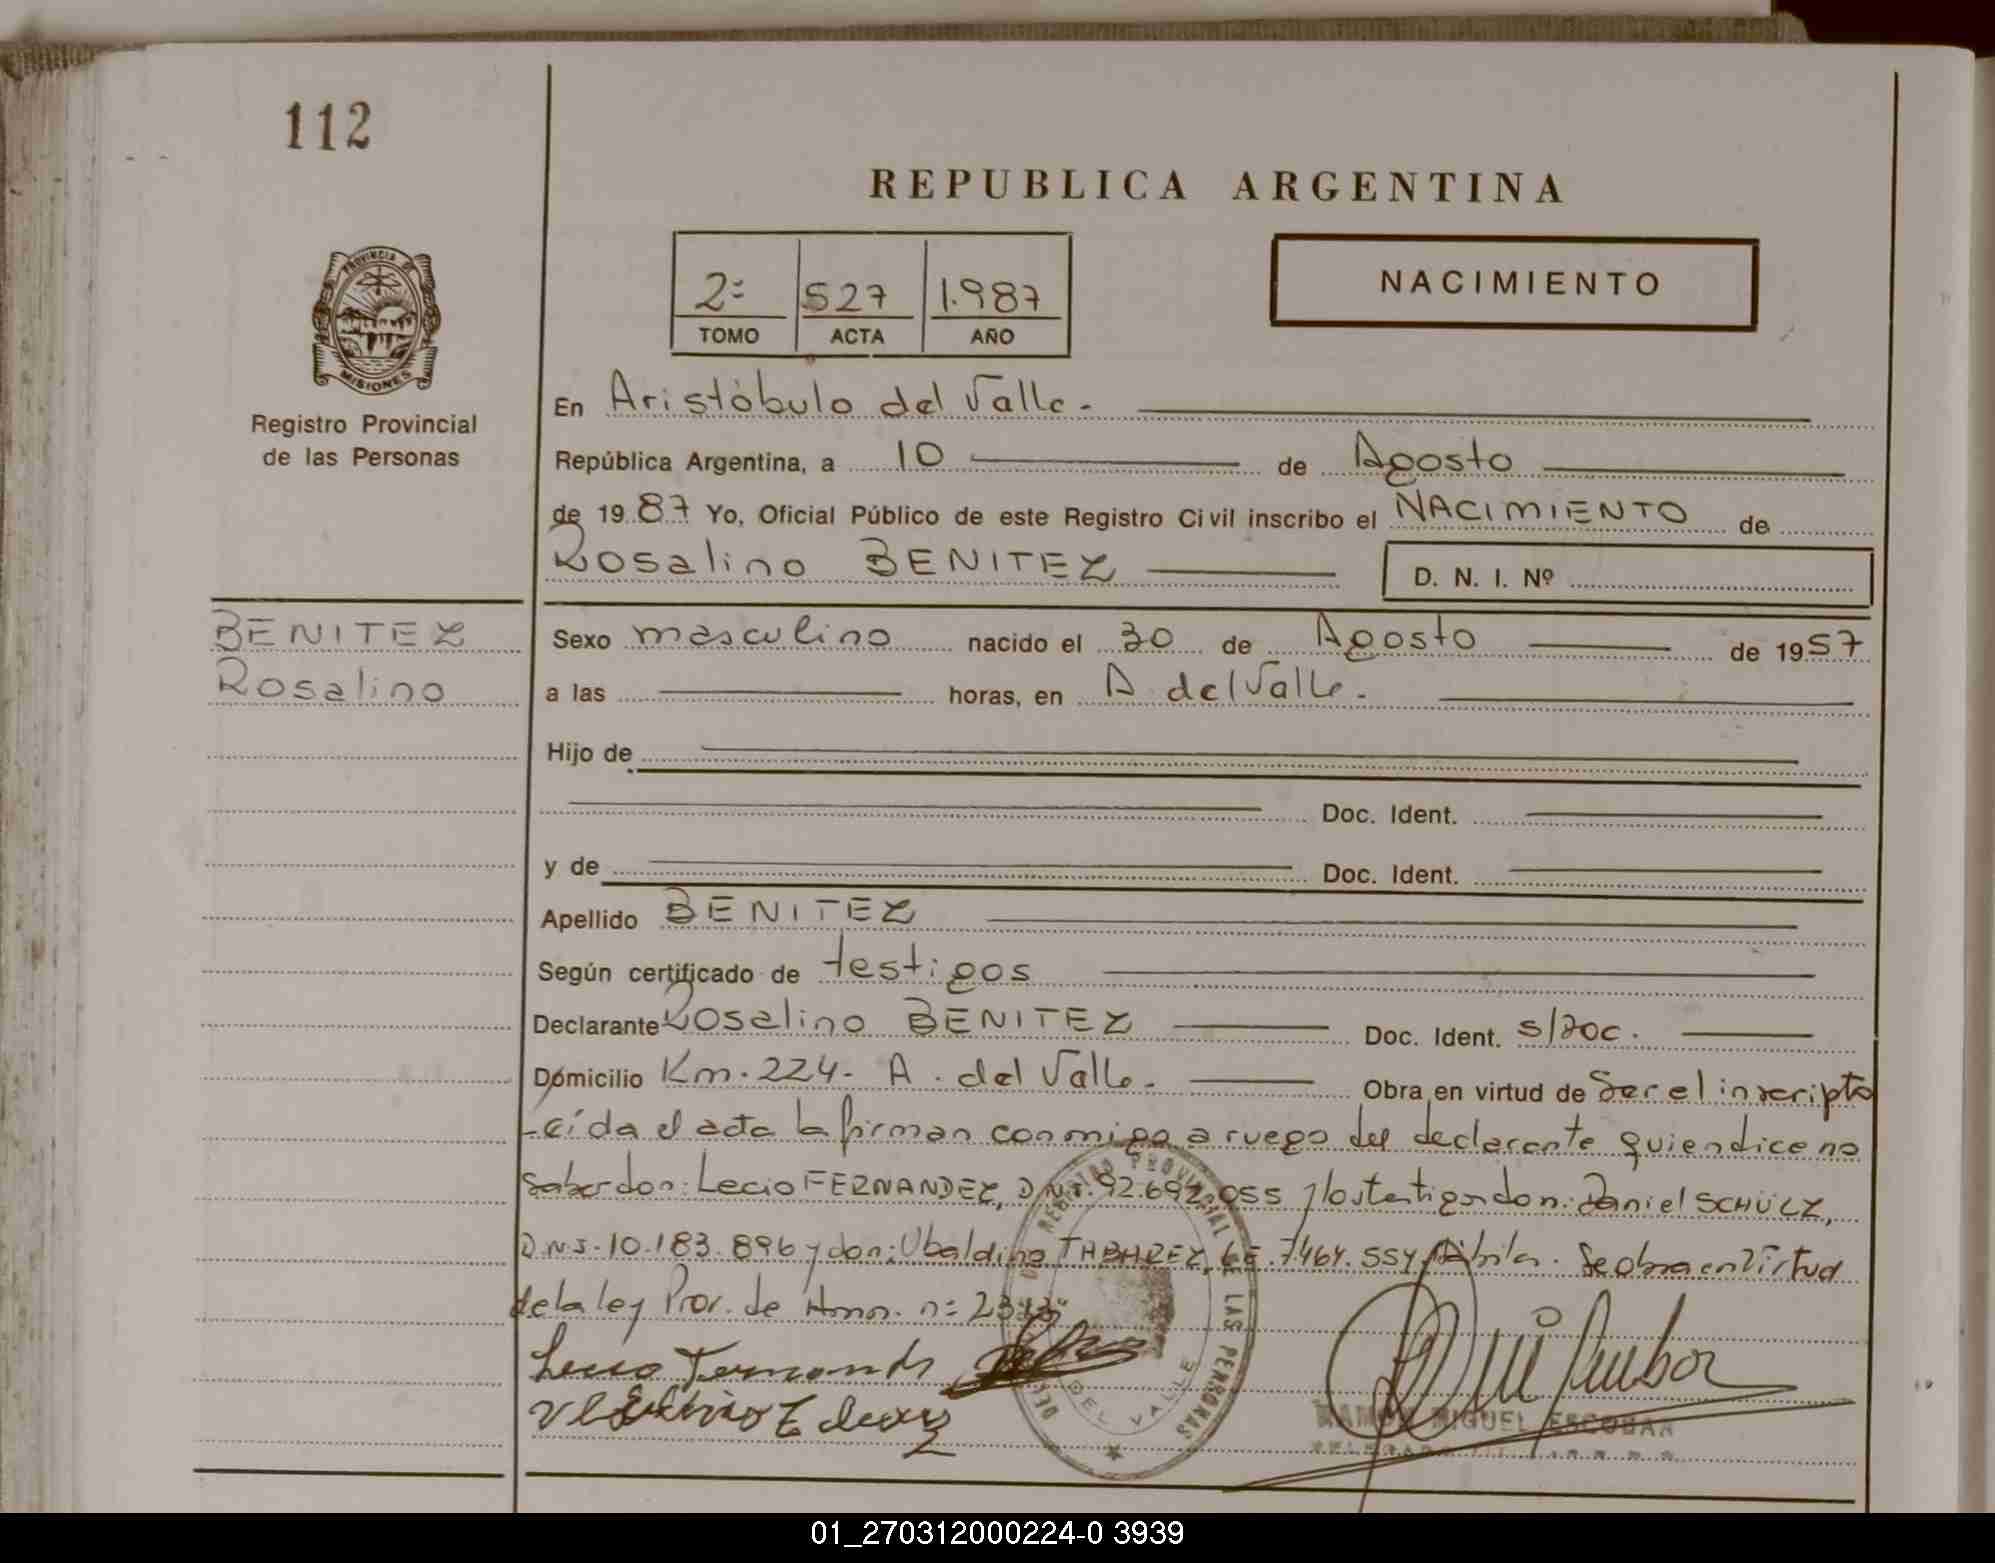 112
REPUBLICA ARGENTINA
PROVINCIA DE
MISIONES
Registro Provincial
de las Personas
2= 527 1.987
TOMO ACTA AÑO
NACIMIENTO
En Aristóbulo del Valle.
República Argentina, a 10 de Agosto
de 1987 Yo, Oficial Público de este Registro Civil inscribo el NACIMIENTO de
Rosalino BENITEZ D. N. I. Nº
BENITEZ
Rosalino
Sexo masculino nacido el 30 de Agosto de 1957
a las horas, en A. del Valle.
Hijo de
Doc. Ident.
y de Doc. Ident.
Apellido BENITEZ
Según certificado de testigos
Declarante Rosalino BENITEZ Doc. Ident. s/doc.
Domicilio Km. 224. A. del Valle. Obra en virtud de Ser el inscripto
Leída el acta la firman conmigo a ruego del declarante quien dice no
Saber don: Lecio FERNANDEZ, D.N.I. 92.692.055 y los testigos don: Daniel SCHÜLZ,
D.N.I. 10.183.896 y don: Ubaldino TABAREZ, L.E. 7.464.554 Se obra en virtud
de la ley Prov. de n=
REGISTRO PROVINCIAL DE LAS PERSONAS
DEL VALLE
RAMON MIGUEL ESCOBAR
01_270312000224-0 3939